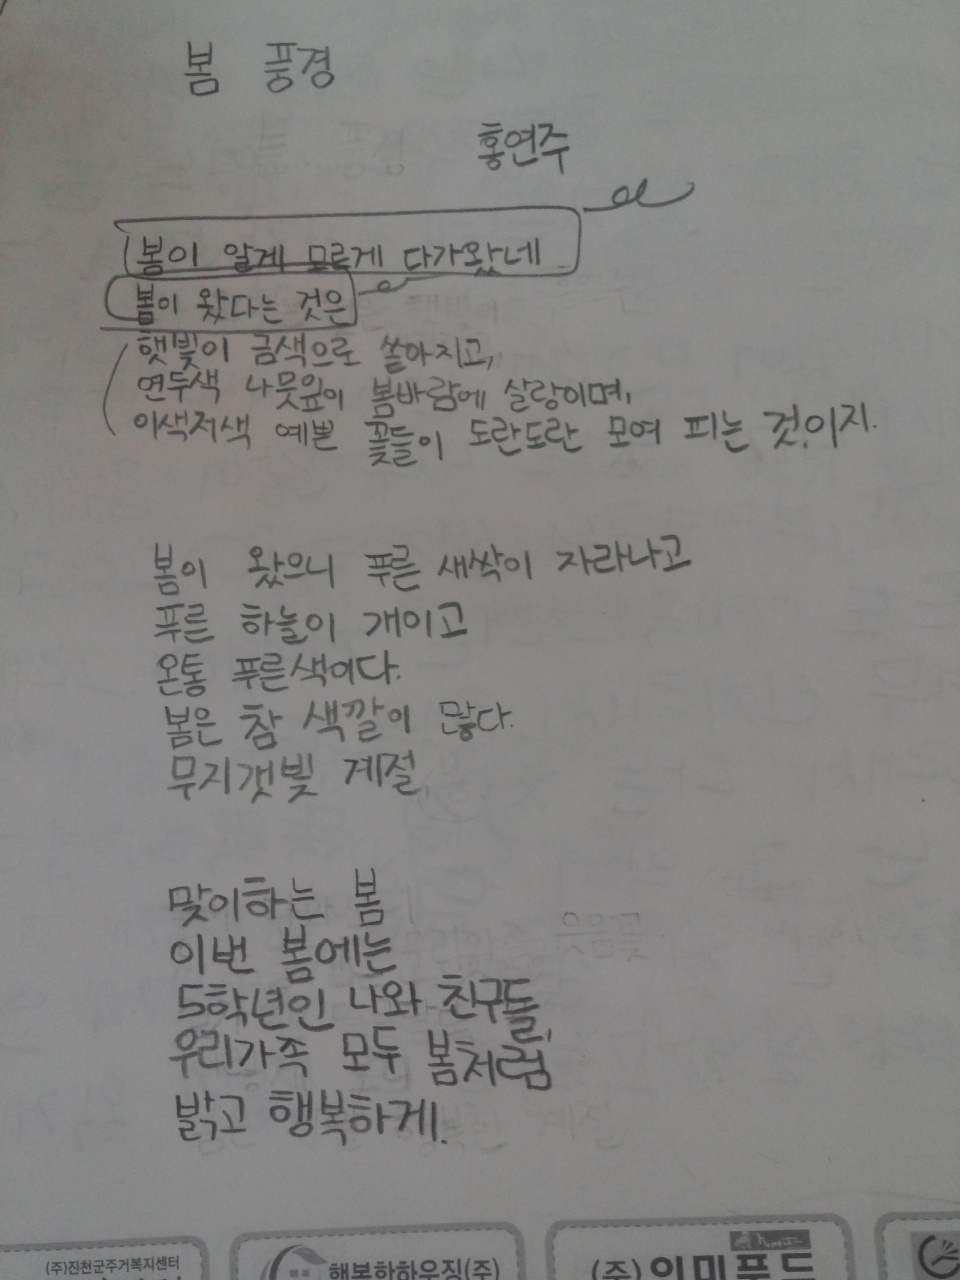 봄 풍경
홍연주
봄이 알게 모르게 다가왔네
봄이 왔다는 것은
햇빛이 금색으로 쏟아지고,
연두색 나뭇잎이 봄바람에 살랑이며,
이색저색 예쁜 꽃들이 도란도란 모여 피는 것이지.
봄이 왔으니 푸른 새싹이 자라나고
푸른 하늘이 개이고
온통 푸른색이다.
봄은 참 색깔이 많다.
무지갯빛 계절.
맞이하는 봄
이번 봄에는
5학년인 나와 친구들,
우리가족 모두 봄처럼
밝고 행복하게.
(주)진천군주거복지센터
행복한하우징(주)
(주)